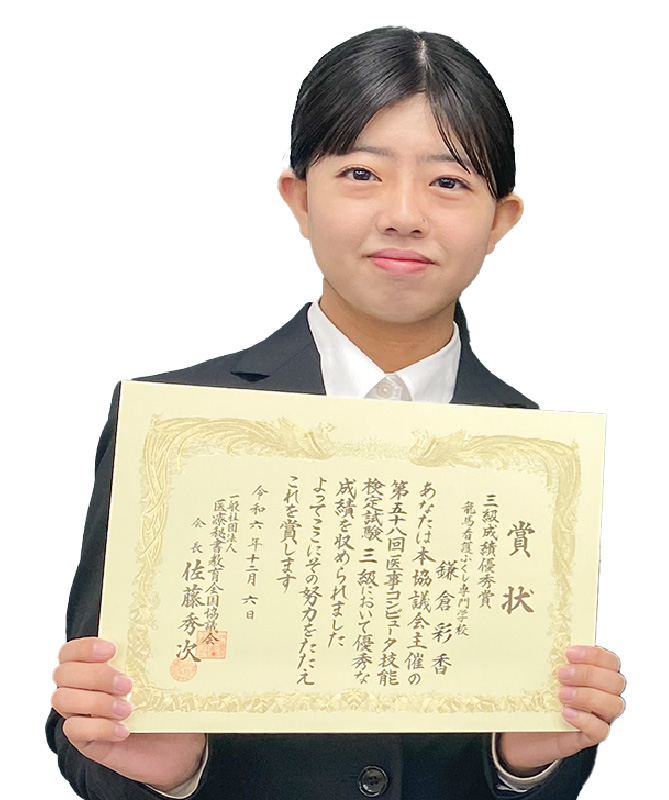 賞状
三級成績優秀賞
龍馬看護ふくし専門学校
鎌倉彩香
あなたは本協議会主催の
第五十八回医事コンピュータ技能
検定試験 三級において優秀な
成績を収められました
よってここにその努力をたたえ
これを賞します
令和六年十二月 六日
一般社団法人
医療秘書教育全国協議会
会長 佐藤秀次